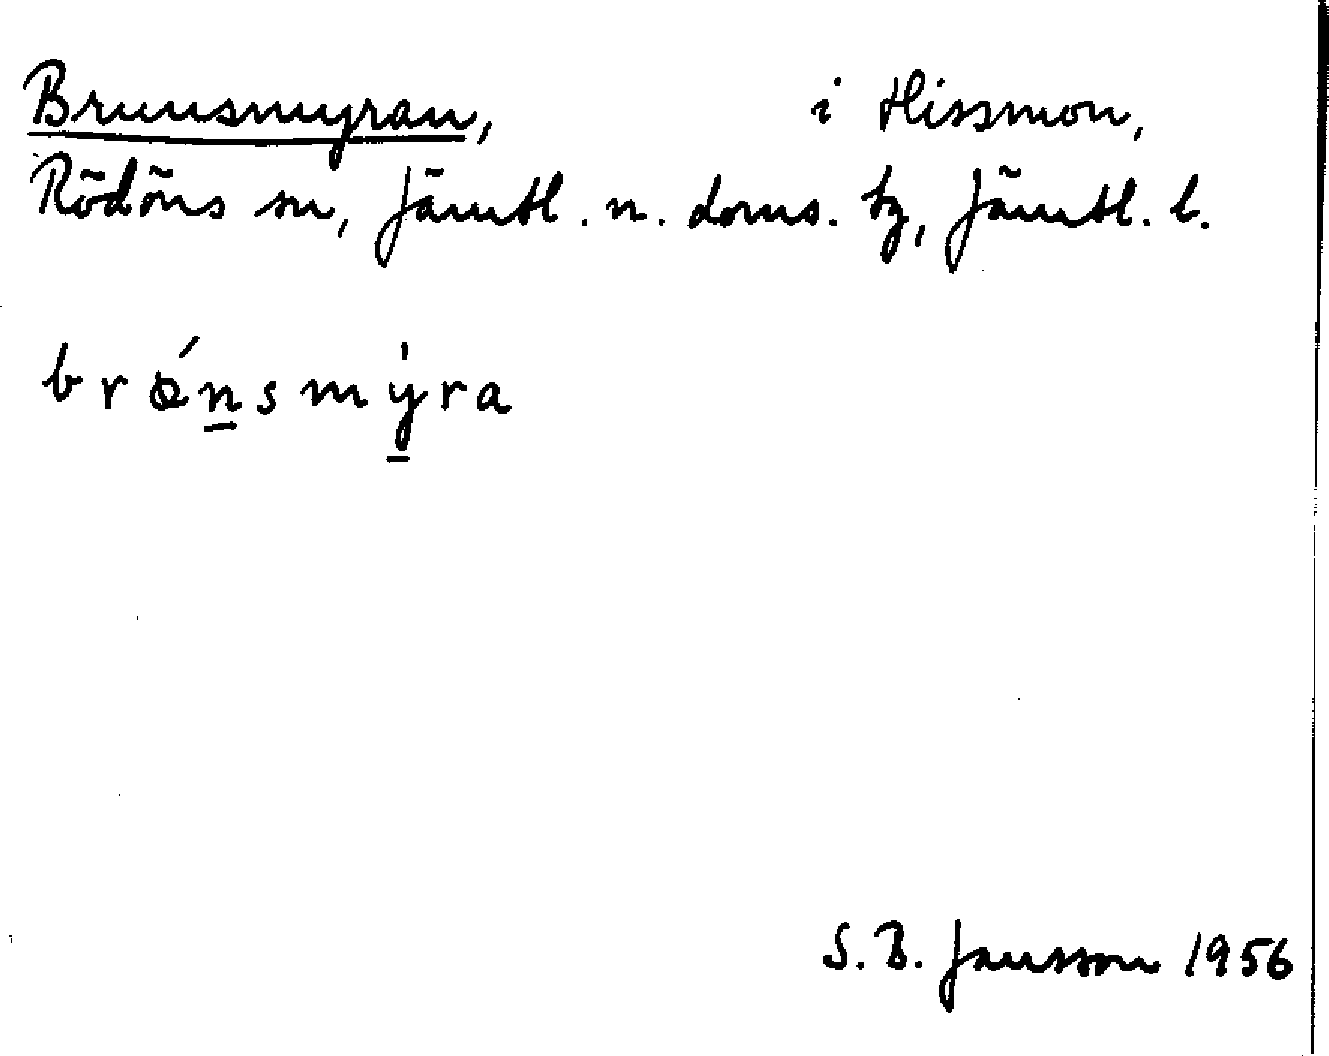 Brunnsmyran, i Hissmon,
Rödöns sn, Jämtl. n. doms. tg, Jämtl. l.
brǿn̲smy̲̍ra
S. B. Jansson 1956